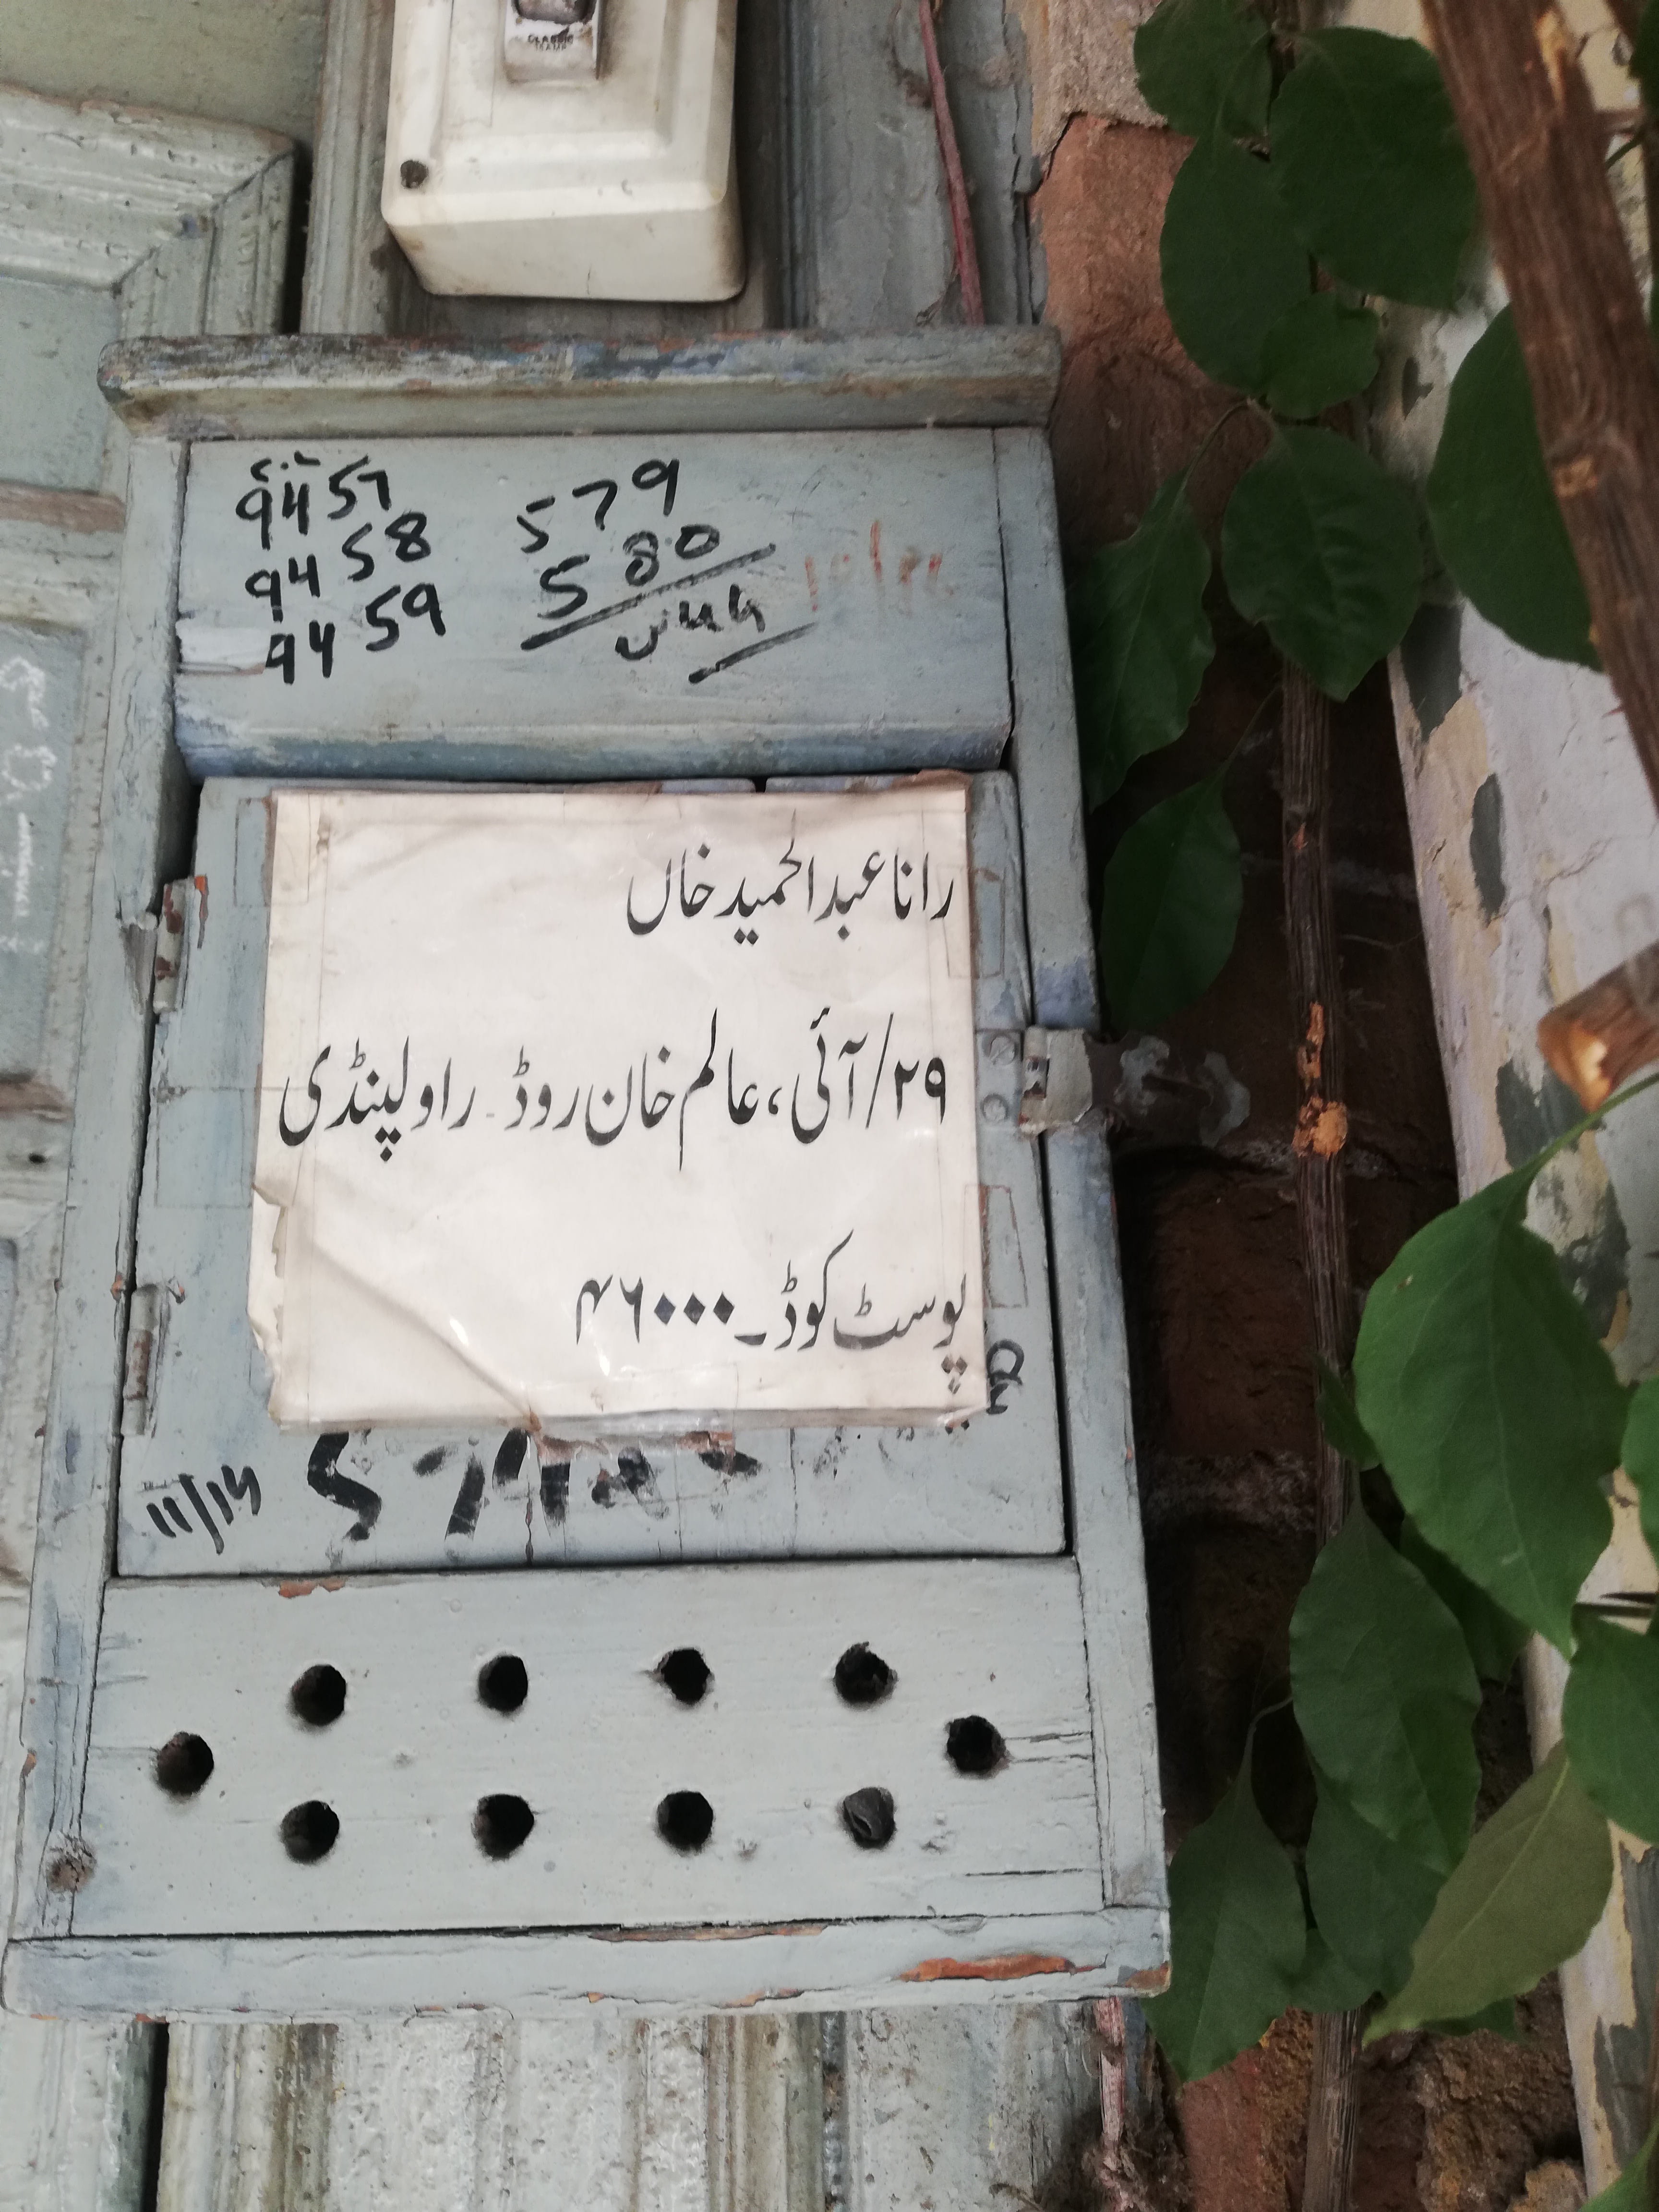 CLASSIC
9457
9458
9459
579
580
رانا عبدالحمید خاں
۲۹/آئی، عالم خان روڈ۔ راولپنڈی
پوسٹ کوڈ۔ ۴۶۰۰۰
11/14